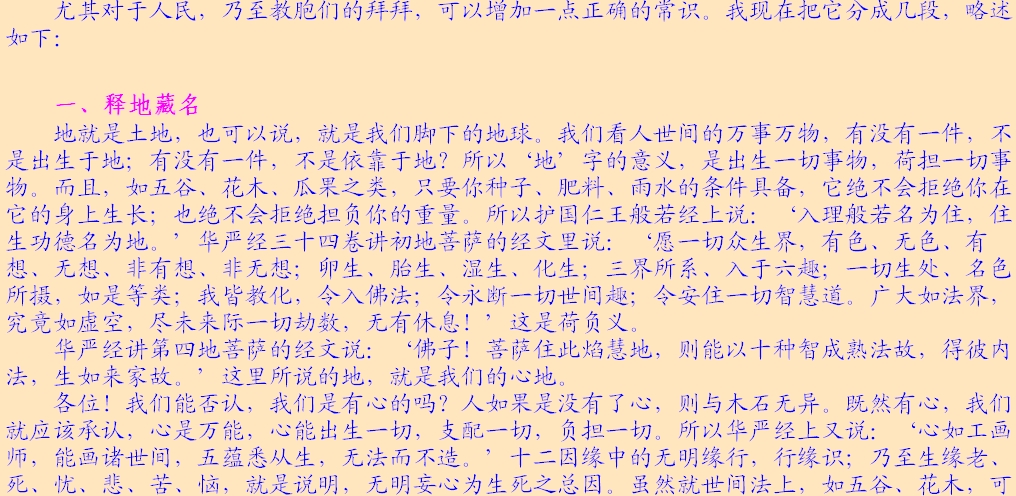 尤其对于人民，乃至教胞们的拜拜，可以增加一点正确的常识。我现在把它分成几段，略述
如下：
一、释地藏名
地就是土地，也可以说，就是我们脚下的地球。我们看人世间的万事万物，有没有一件，不
是出生于地；有没有一件，不是依靠于地？所以‘地’字的意义，是出生一切事物，荷担一切事
物。而且，如五谷、花木、瓜果之类，只要你种子、肥料、雨水的条件具备，它绝不会拒绝你在
它的身上生长；也绝不会拒绝担负你的重量。所以护国仁王般若经上说：‘入理般若名为住，住
生功德名为地。’华严经三十四卷讲初地菩萨的经文里说：‘愿一切众生界，有色、无色、有
想、无想、非有想、非无想；卵生、胎生、湿生、化生；三界所系、入于六趣；一切生处、名色
所摄，如是等类；我皆教化，令入佛法；令永断一切世间趣；令安住一切智慧道。广大如法界，
究竟如虚空，尽未来际一切劫数，无有休息！’这是荷负义。
华严经讲第四地菩萨的经文说：‘佛子！菩萨住此焰慧地，则能以十种智成熟法故，得彼内
法，生如来家故。’这里所说的地，就是我们的心地。
各位！我们能否认，我们是有心的吗？人如果是没有了心，则与木石无异。既然有心，我们
就应该承认，心是万能，心能出生一切，支配一切，负担一切。所以华严经上又说：‘心如工画
师，能画诸世间，五蕴悉从生，无法而不造。’十二因缘中的无明缘行，行缘识；乃至生缘老、
死、忧、悲、苦、恼，就是说明，无明妄心为生死之总因。虽然就世间法上，如五谷、花木，可